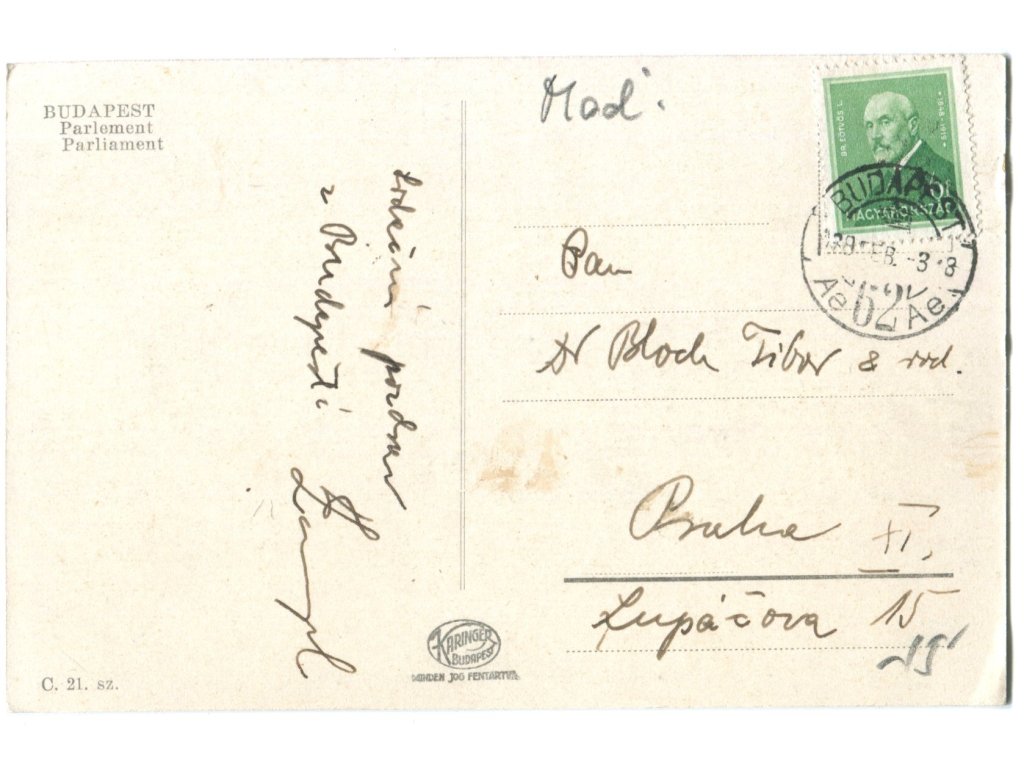 BUDAPEST
Parlement
Parliament
Srdečný pozdrav
z Budapešti
Maď.
BR. EÖTVÖS L.
1848-1919
MAGYARORSZÁG
BUDAPEST
62
Ae Ae
Pan
Dr Bloch Tibor & rod.
Praha XI.
Lupáčova 15
KARINGER
BUDAPEST
MINDEN JOG FENTARTVA
C. 21. sz.